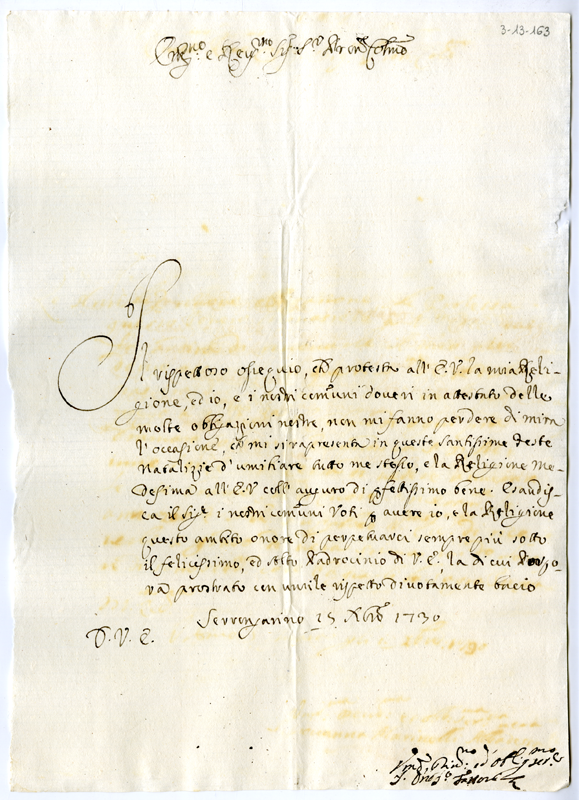 3-13-163
Em̃no e Reṽmo Sigr Sigr Pron Colmo
Il rispettoso ossequio, che protesta all' E.V. la mia Reli-
gione, ed io, e i nostri comuni doveri in attestato delle
molte obbligazioni nostre, non mi fanno perdere di mira
l'occasione, che mi si rapresenta in queste santissime Feste
Natalizie d'umiliare tutto me stesso, e la Religione me-
desima all' E.V. coll' auguro di pfettissimo bene. Esaudis-
ca il Sigre i nostri comuni Voti p avere io, e la Religione
questo ambito onore di perpetuarci sempre più sotto
il felicissimo, ed alto Padrocinio di V.E., la di cui Porpo-
ra prostrato con umile rispetto divotamente bacio
15 Xbre 1730
D. V. E.